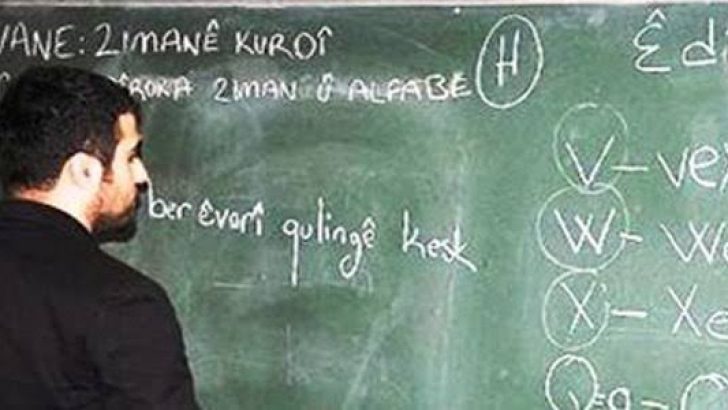 VANE: ZIMANÊ KURDÎ
ÎROKA ZIMAN Û ALFABE
H
ber êvarî qulingê kesk
Ê d
V – ver
W – We
X – Xe
Q